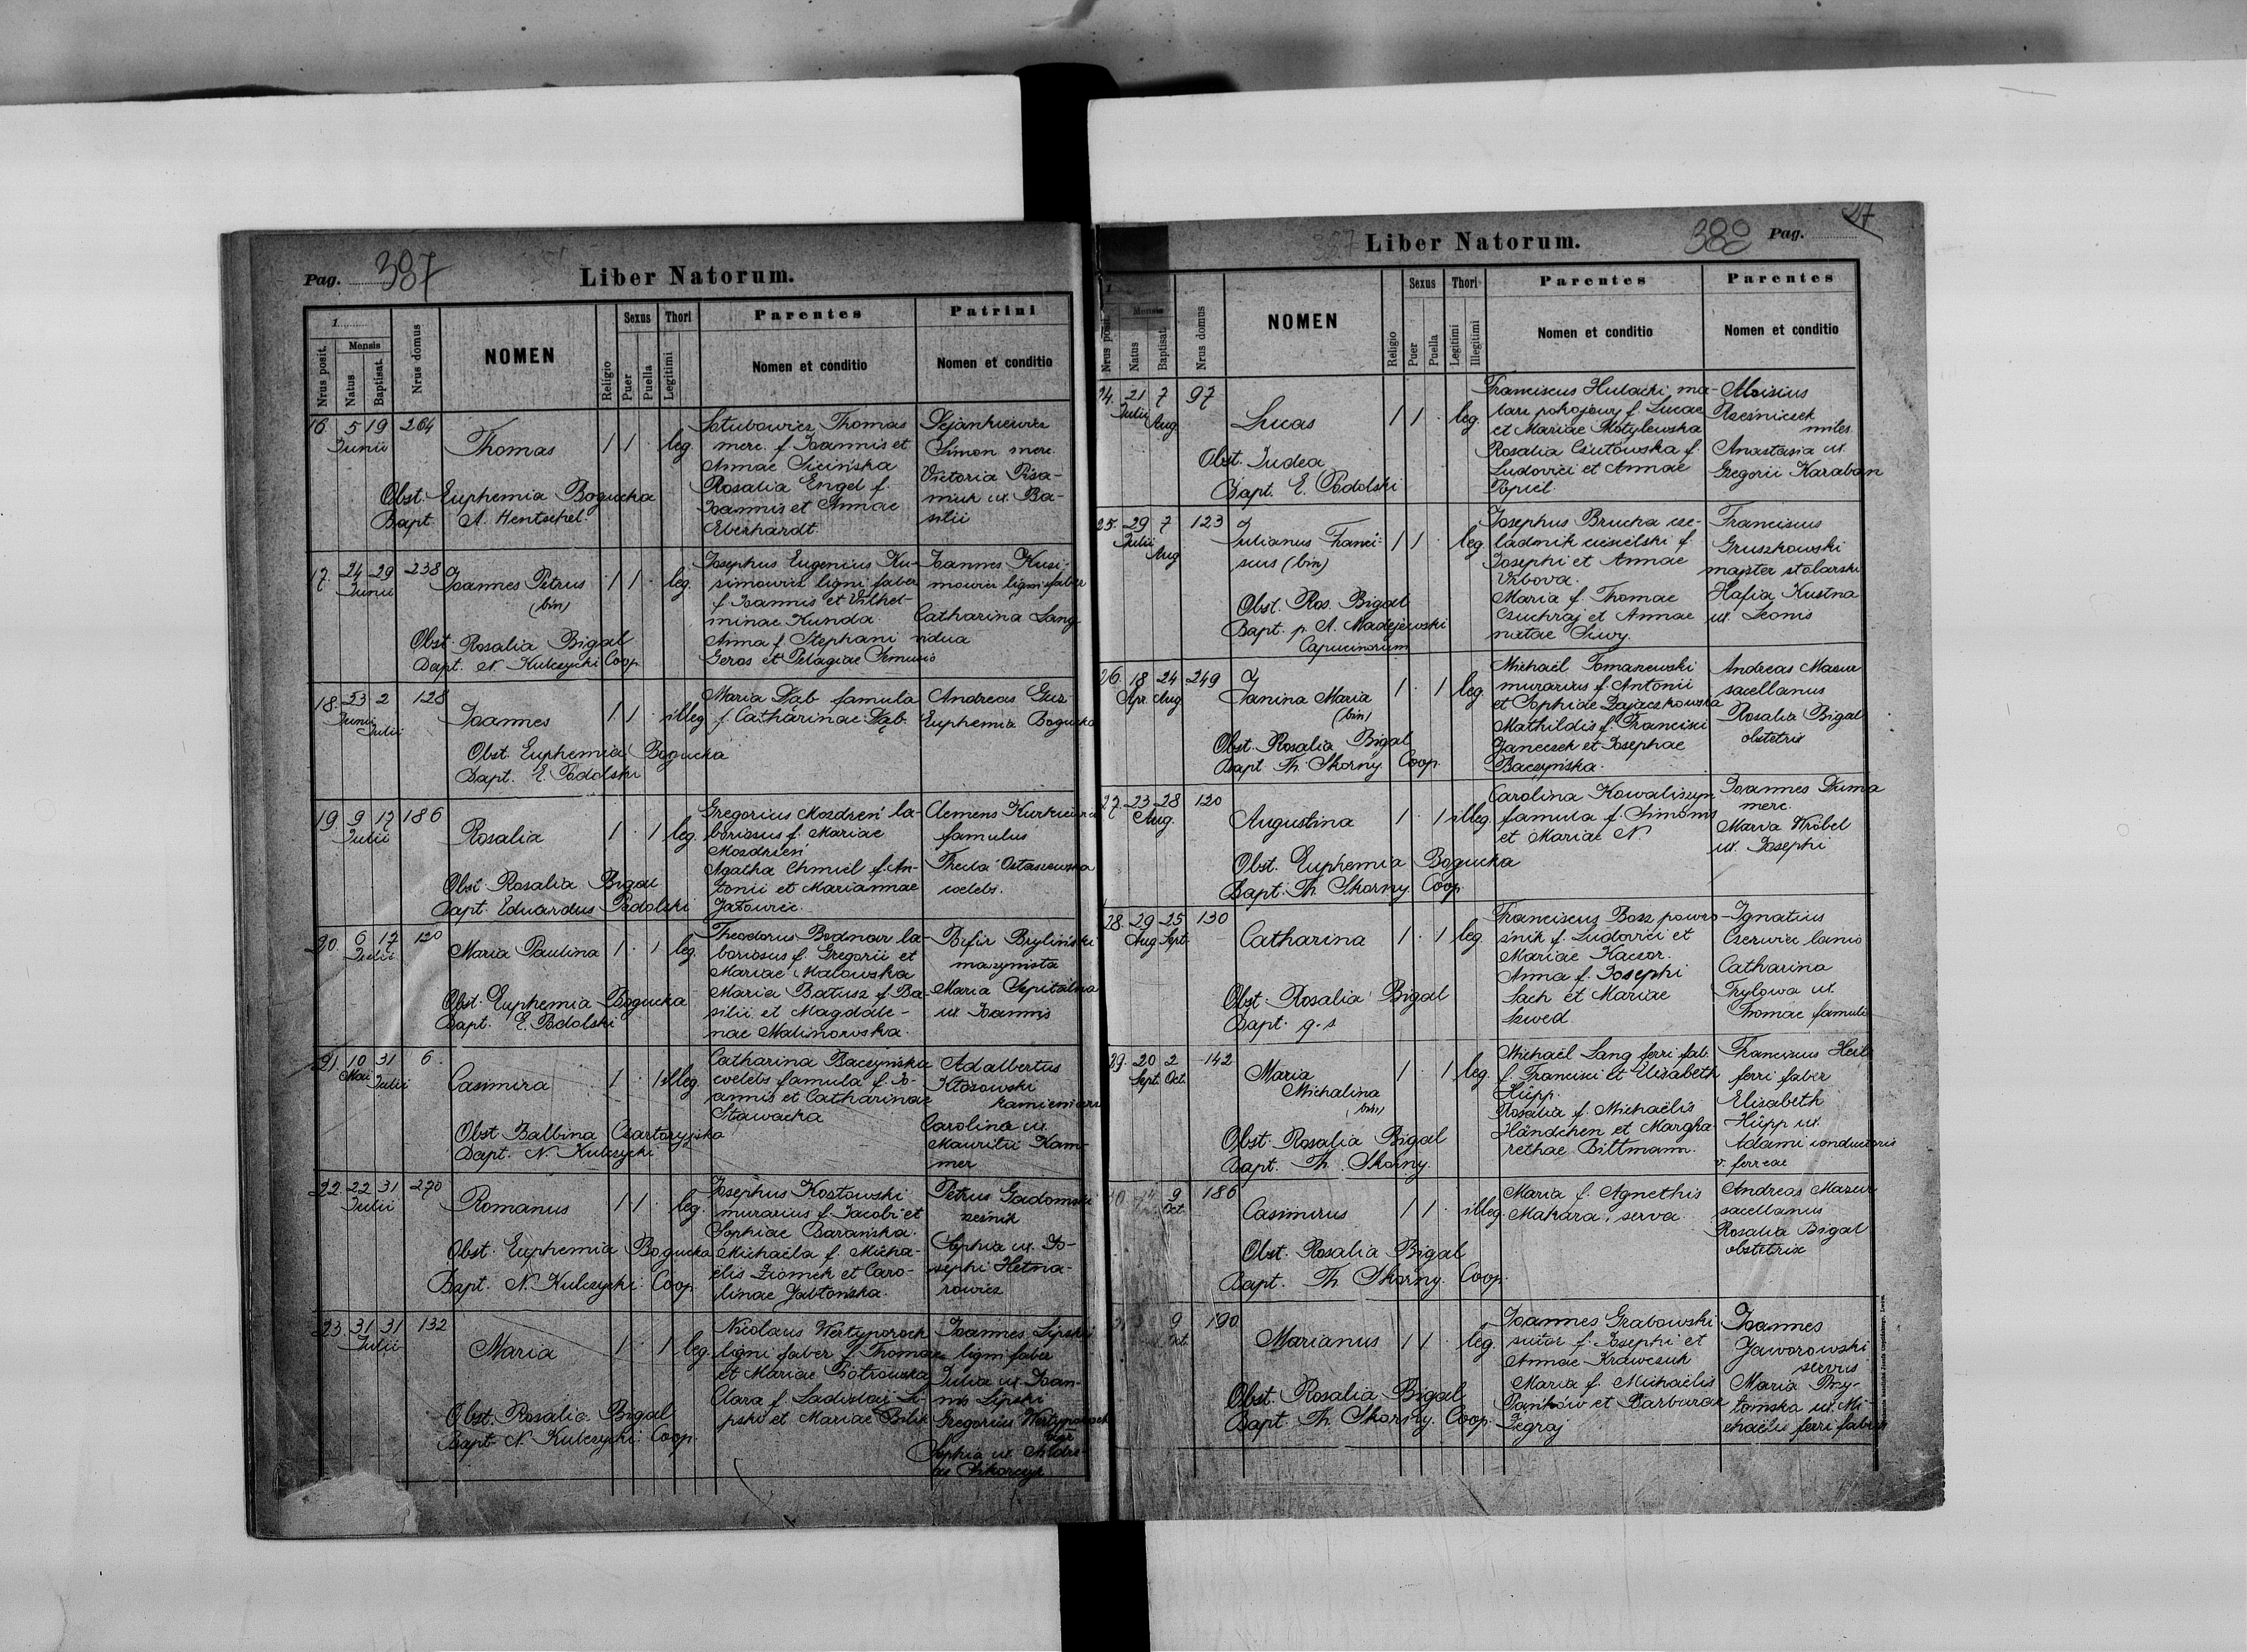 Pag. 387
Liber Natorum.
1
Nrus posit.
Mensis
Natus
Baptisat.
Nrus domus
NOMEN
Religio
Sexus
Puer
Puella
Thori
Legitimi
Parentes
Nomen et conditio
Patrini
Nomen et conditio
16. 5 19 264
Junii
Thomas
1 1 . leg.
Obst. Euphemia Bogucka
Bapt. A. Hentschel.
Thomas
merc. f. Joannis et
Annae Sicińska
Rosalia Engel f.
Joannis et Annae
Eberhardt.
Simon merc.
Victoria
ux. Ba-
silii
17. 24 29 238
Junii
Joannes Petrus
(bin)
1 1 . leg.
Obst. Rosalia Bigal
Bapt. N. Kulczycki Coop.
Josephus Eugenius Ku-
simowicz ligni faber
f. Joannis et Vilhel-
minae Kunda.
Anna f. Stephani
Geros et Pelagiae
Joannes Kusi-
mowicz ligni faber
Catharina Lang
vidua
18. 23 2 128
Junii Julii
Joannes
1 1 . illeg.
Obst. Euphemia Bogucka
Bapt. E. Podolski
Maria Dąb famula
f. Catharinae Dąb.
Andreas
Euphemia Bogucka
19. 9 17 186
Julii
Rosalia
1 . 1 leg.
Obst. Rosalia Bigal
Bapt. Eduardus Podolski
Gregorius Mozdzeń la-
boriosus f. Mariae
Mozdzeń
Agatha Chmiel f. An-
tonii et Mariannae
Jatowiec.
Clemens Kurkiewicz
famulus
Thecla Ostaszewska
coelebs.
20. 6 17 120
Julii
Maria Paulina
1 . 1 leg.
Obst. Euphemia Bogucka
Bapt. E. Podolski
Theodorus Bodnar la-
boriosus f. Gregorii et
Mariae Malowska
Maria Batusz f. Ba-
silii et Magdale-
nae Malinowska.
Brylinski
maszynista
Maria Szpitalna
ux. Joannis
21. 10 31 6.
Mai Julii
Casimira
1 . 1 illeg.
Obst. Balbina Czartoryjska
Bapt. N. Kulczycki.
Catharina Baczyńska
coelebs famula f. Jo-
annis et Catharinae
Stawacka
Adalbertus
Kłosowski
Carolina ux.
Mauritii Kam-
mer
22. 22 31 270
Julii
Romanus
1 1 . leg.
Obst. Euphemia Bogucka
Bapt. N. Kulczycki Coop.
Josephus Kostowski
murarius f. Jacobi et
Sophiae Barańska.
Michaëla f. Micha-
ëlis Ziomek et Caro-
linae Jabłońska.
Petrus Gadomski
rzeźnik
Sophia ux. Jo-
sephi Hetna-
rowicz
23. 31 31 132
Julii
Maria
1 . 1 leg.
Obst. Rosalia Bigal
Bapt. N. Kulczycki Coop.
Nicolaus Wertyporoch
ligni faber f. Thomae
et Mariae Piotrowska
Clara f. Ladislai Li-
pski et Mariae Bilik
Joannes Lipski
ligni faber
Julia ux. Joan-
nis Lipski
Gregorius Wertyporoch
Sophia ux.
387
Liber Natorum.
388 Pag. 27
1
Nrus posit.
Mensis
Natus
Baptisat.
Nrus domus
NOMEN
Religio
Sexus
Puer
Puella
Thori
Legitimi
Illegitimi
Parentes
Nomen et conditio
Parentes
Nomen et conditio
24. 21 7 97
Julii Aug
Lucas
1 1 . leg.
Obst. Judea
Bapt. E. Podolski
Franciscus Hulacki ma-
larz pokojowy f. Lucae
et Mariae Motylewska
Rosalia f.
Ludovici et Annae
Popiel.
Aloisius
Rzeźniczek
miles.
Anastasia ux.
Gregorii Karaban
25. 29 7 123
Julii Aug
Julianus Franci-
scus (bin)
1 1 . leg.
Obst. Ros. Bigal
Bapt. p. A. Madejewski
Capucinorum
Josephus Brucha cze-
ladnik ciesielski f.
Josephi et Annae
Vrbova.
Maria f. Thomae
Csuchraj et Annae
natae Siwy.
Franciscus
Gruszkowski
majster stolarski
Hafia Kustna
ux. Leonis
26. 18 24 249
Apr. Aug
Janina Maria
(bin)
1 . 1 leg.
Obst. Rosalia Bigal
Bapt. Th. Skorny. Coop.
Michaël Tomaszewski
murarius f. Antonii
et Sophiae Zajączkowska
Mathildis f. Francisci
Janeczek et Josephae
Baczyńska.
Andreas Mazur
sacellanus
Rosalia Bigal
obstetrix
27. 23 28 120
Aug.
Augustina
1 . 1 illeg.
Obst. Euphemia Bogucka
Bapt. Th. Skorny. Coop.
Carolina Kowaliszyn
famula f. Simonis
et Mariae N.
Joannes Duma
merc.
Maria Wróbel
ux. Josephi
28. 29 25 130
Aug Sept.
Catharina
1 . 1 leg.
Obst. Rosalia Bigal
Bapt. q. s
Franciscus Bosz powro-
źnik f. Ludovici et
Mariae Kaczor.
Anna f. Josephi
Sach et Mariae
Szwed
Ignatius
Czerwiec lanio
Catharina
Trylowa ux.
Thomae famuli
29. 20 2 142
Sept. Oct.
Maria
Michalina
(bin)
1 . 1 leg.
Obst. Rosalia Bigal
Bapt. Th. Skorny.
Michaël Lang ferri fab.
f. Francisci et Elisabeth
Hüpp.
Rosalia f. Michaëlis
Händchen et Marga-
rethae Bittmann.
Franciscus Heil
ferri faber
Elisabeth
Hüpp ux.
Adami conductoris
v. ferreae
30. 9 186
Oct.
Casimirus
1 1 . illeg.
Obst. Rosalia Bigal
Bapt. Th. Skorny. Coop.
Maria f. Agnethis
Makara, serva.
Andreas Mazur
sacellanus
Rosalia Bigal
obstetrix
9 190
Oct.
Marianus
1 1 . leg.
Obst. Rosalia Bigal
Bapt. Th. Skorny. Coop.
Joannes Grabowski
sutor f. Josephi et
Annae Krawczuk
Maria f. Michaëlis
Pańków et Barbarae
Zegraj
Joannes
Jaworowski
servus
Maria Przy-
tomska ux. Mi-
chaëlis ferri fabri